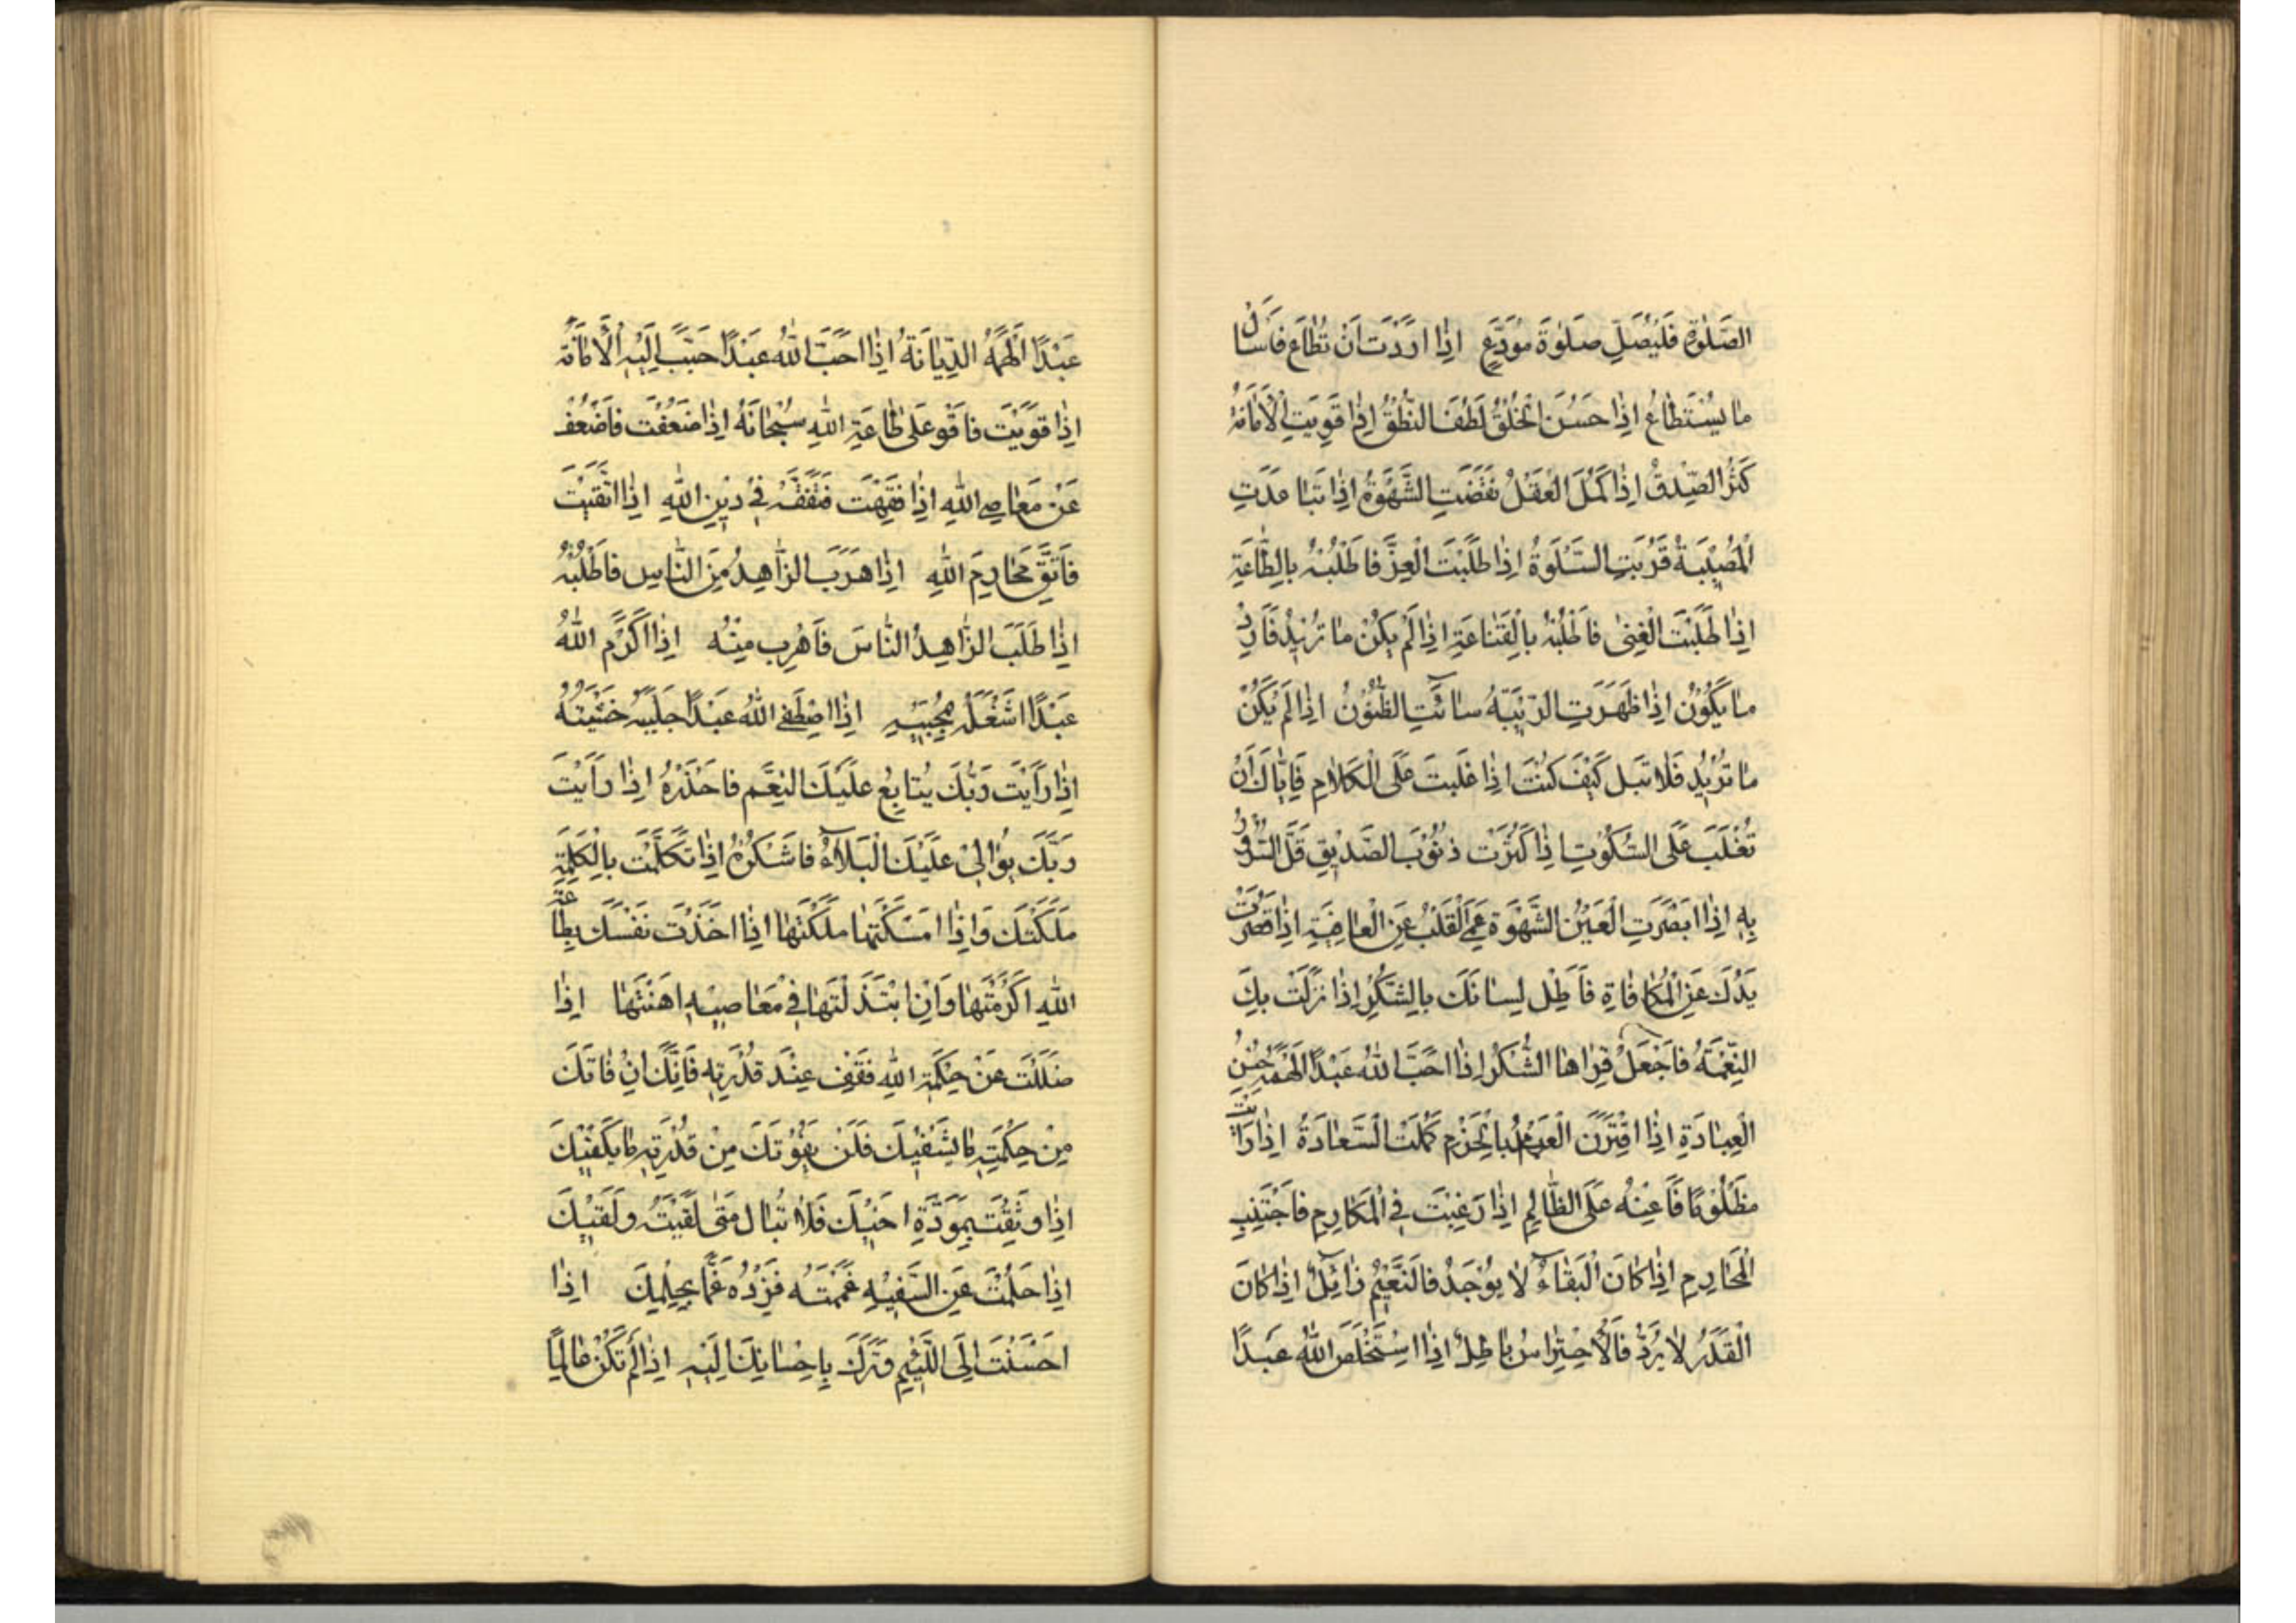 الصَّلوٰةِ فَلْيُصَلِّ صَلوٰةَ مُوَدِّعٍ اِذٰا اَرَدْتَ اَنْ تُطٰاعَ فَاسْاَلْ
مٰا يُسْتَطٰاعُ اِذٰا حَسُنَ الْخُلْقُ لَطُفَ النُّطْقُ اِذٰا قَوِيَتِ الْاَمٰانَةُ
كَثُرَ الصِّدْقُ اِذٰا كَمُلَ الْعَقْلُ نَقَصَتِ الشَّهْوَةُ اِذٰا تَبٰاعَدَتِ
الْمُصِيْبَةُ قَرُبَتِ السَّلْوَةُ اِذٰا طَلَبْتَ الْعِزَّ فَاطْلُبْهُ بِالطّٰاعَةِ
اِذٰا طَلَبْتَ الْغِنىٰ فَاطْلُبْهُ بِالْقَنٰاعَةِ اِذٰا لَمْ يَكُنْ مٰا تُرِيْدُ فَاَرِدْ
مٰا يَكُوْنُ اِذٰا ظَهَرَتِ الرِّيْبَةُ سٰاءَتِ الظُّنُوْنُ اِذٰا لَمْ يَكُنْ
مٰا تُرِيْدُ فَلٰا تُبَلْ كَيْفَ كُنْتَ اِذٰا غُلِبْتَ عَلَى الْكَلٰامِ فَاِيّٰاكَ اَنْ
تُغْلَبَ عَلَى السُّكُوْتِ اِذٰا كَثُرَتْ ذُنُوْبُ الصَّدِيْقِ قَلَّ السُّرُوْرُ
بِهِ اِذٰا اَبْصَرَتِ الْعَيْنُ الشَّهْوَةَ عَمِىَ الْقَلْبُ عَنِ الْعٰاقِبَةِ اِذٰا قَصُرَتْ
يَدُكَ عَنِ الْمُكٰافٰاةِ فَاَطِلْ لِسٰانَكَ بِالشُّكْرِ اِذٰا نَزَلَتْ بِكَ
النِّعْمَةُ فَاجْعَلْ قِرٰاهَا الشُّكْرَ اِذٰا اَحَبَّ اللّٰهُ عَبْدًا اَلْهَمَهُ حُسْنَ
الْعِبٰادَةِ اِذٰا اقْتَرَنَ الْعَزْمُ بِالْحَزْمِ كَمُلَتِ السَّعٰادَةُ اِذٰا رَاَيْتَ
مَظْلُوْمًا فَاَعِنْهُ عَلَى الظّٰالِمِ اِذٰا رَغِبْتَ فِى الْمَكٰارِمِ فَاجْتَنِبِ
الْمَحٰارِمَ اِذٰا كٰانَ الْبَقٰاءُ لٰا يُوْجَدُ فَالنَّعِيْمُ زٰائِلٌ اِذٰا كٰانَ
الْقَدَرُ لٰا يُرَدُّ فَالْاِحْتِرٰاسُ بٰاطِلٌ اِذٰا اسْتَخْلَصَ اللّٰهُ عَبْدًا
عَبْدًا اَلْهَمَهُ الدِّيٰانَةَ اِذٰا اَحَبَّ اللّٰهُ عَبْدًا حَبَّبَ اِلَيْهِ الْاَمٰانَةَ
اِذٰا قَوِيْتَ فَاقْوَ عَلىٰ طٰاعَةِ اللّٰهِ سُبْحٰانَهُ اِذٰا ضَعُفْتَ فَاضْعُفْ
عَنْ مَعٰاصِى اللّٰهِ اِذٰا فَقِهْتَ فَتَفَقَّهْ فِىْ دِيْنِ اللّٰهِ اِذَا اتَّقَيْتَ
فَاتَّقِ مَحٰارِمَ اللّٰهِ اِذٰا هَرَبَ الزّٰاهِدُ مِنَ النّٰاسِ فَاطْلُبْهُ
اِذٰا طَلَبَ الزّٰاهِدُ النّٰاسَ فَاهْرِبْ مِنْهُ اِذٰا اَكْرَمَ اللّٰهُ
عَبْدًا اَشْغَلَهُ بِمَحَبَّتِهِ اِذَا اصْطَفَى اللّٰهُ عَبْدًا جَلْبَبَهُ خَشْيَتَهُ
اِذٰا رَاَيْتَ رَبَّكَ يُتٰابِعُ عَلَيْكَ النِّعَمَ فَاحْذَرْهُ اِذٰا رَاَيْتَ
رَبَّكَ يُوٰالِىْ عَلَيْكَ الْبَلٰاءَ فَاشْكُرْهُ اِذٰا تَكَلَّمْتَ بِالْكَلِمَةِ
مَلَكَتْكَ وَاِذٰا اَمْسَكْتَهٰا مَلَكْتَهٰا اِذٰا اَخَذْتَ نَفْسَكَ بِطٰاعَةِ
اللّٰهِ اَكْرَمْتَهٰا وَاِنِ ابْتَذَلْتَهٰا فِىْ مَعٰاصِيْهِ اَهَنْتَهٰا اِذٰا
ضَلَلْتَ عَنْ حِكْمَةِ اللّٰهِ فَقِفْ عِنْدَ قُدْرَتِهِ فَاِنَّكَ اِنْ فٰاتَكَ
مِنْ حِكْمَتِهِ مٰا يَشْفِيْكَ فَلَنْ يَفُوْتَكَ مِنْ قُدْرَتِهِ مٰا يَكْفِيْكَ
اِذٰا وَثِقْتَ بِمَوَدَّةِ اَخِيْكَ فَلٰا تُبٰالِ مَتىٰ لَقِيْتَهُ وَلَقِيَكَ
اِذٰا حَلُمْتَ عَنِ السَّفِيْهِ غَمَمْتَهُ فَزِدْهُ غَمًّا بِحِلْمِكَ اِذٰا
اَحْسَنْتَ اِلَى اللَّئِيْمِ وَتَرَكَ بِاِحْسٰانِكَ اِلَيْهِ اِذٰا لَمْ تَكُنْ عٰالِمًا